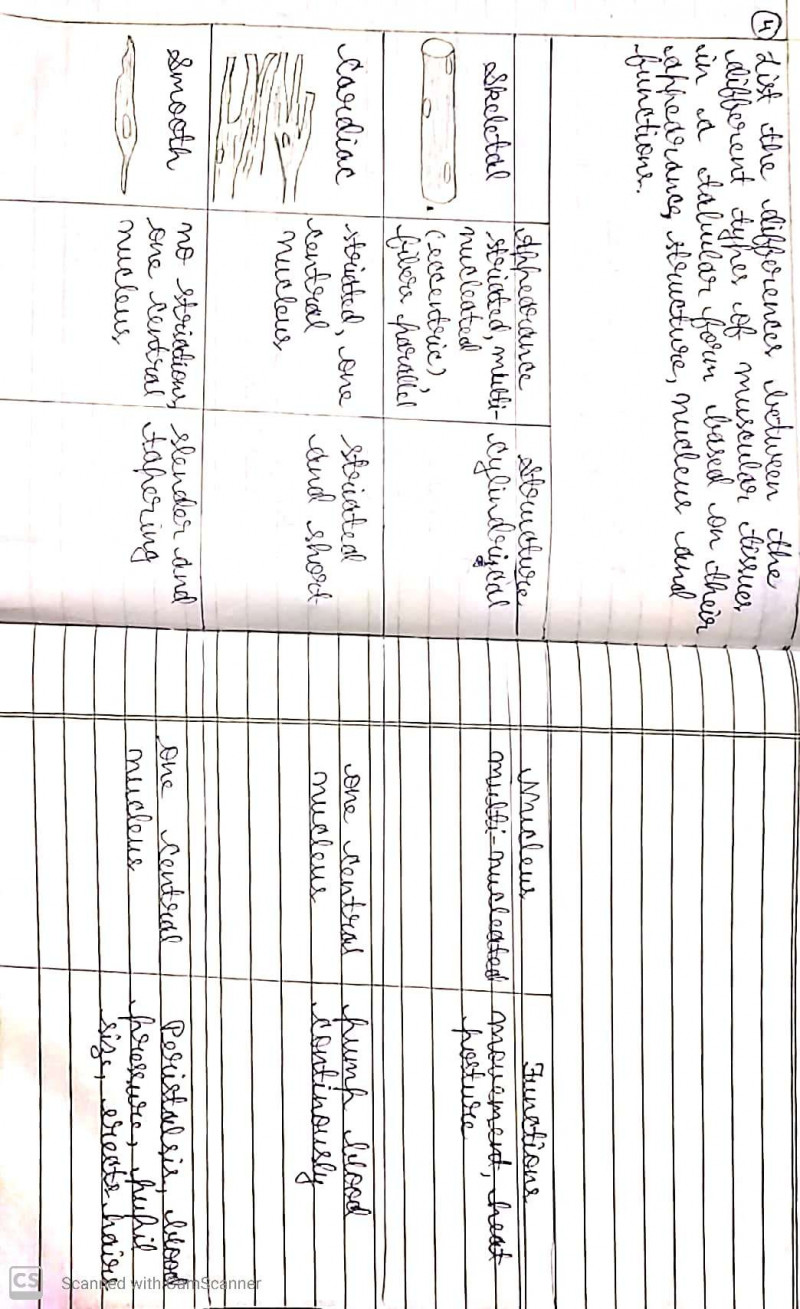 4 List the differences between the
different types of muscular tissues
in a tabular form based on their
appearance, structure, nucleus and
functions.
Appearance Structure Nucleus Functions
Skeletal
striated, multi-
nucleated
(eccentric),
fibers parallel
cylindrical
multi-nucleated
movement, heat
posture
Cardiac
striated, one
central
nucleus
striated
and short
one central
nucleus
pump blood
continously
Smooth
no striations,
one central
nucleus
slender and
tapering
one central
nucleus
Peristalsis, blood
pressure, pupil
size, erects hair
CS Scanned with CamScanner